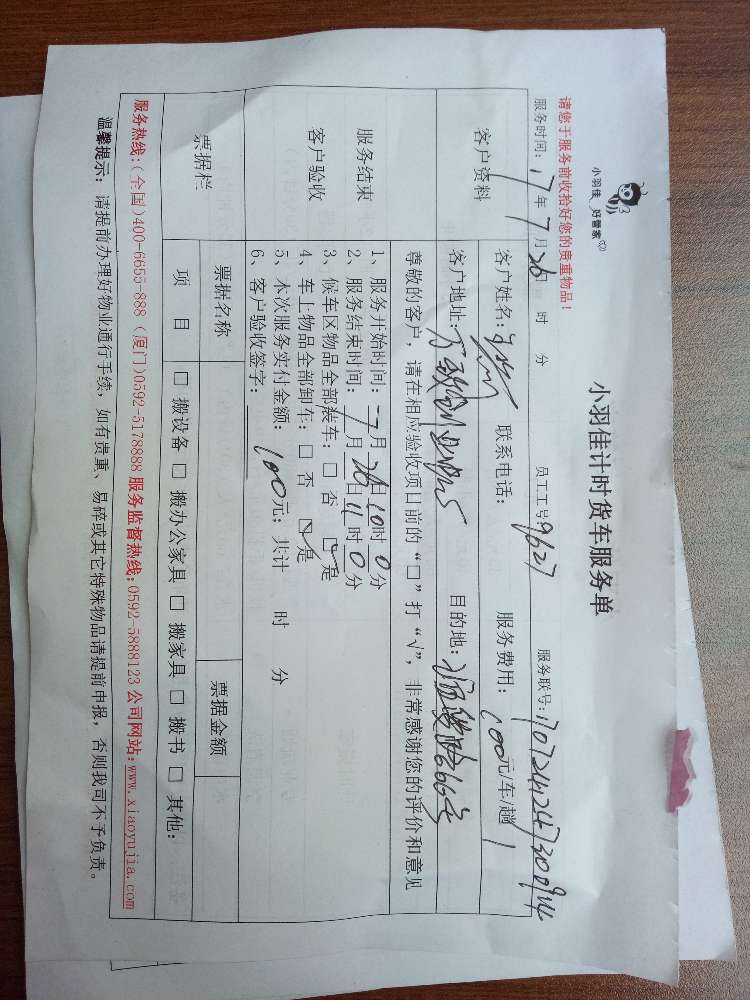 小羽佳 好管家
小羽佳计时货车服务单
请您于服务前收拾好您的贵重物品！
服务时间：17年7月26 时 分 员工工号9627 服务联号：
客户资料
客户姓名： 联系电话： 服务费用：100元/车/趟
客户地址： 目的地：
尊敬的客户，请在相应验收项目前的“□”打“√”，非常感谢您的评价和意见
服务结束
客户验收
1、服务开始时间：7月26日10时0分
2、服务结束时间：7月26日11时0分
3、候车区物品全部装车：□否 ☑是
4、车上物品全部卸车：□否 ☑是
5、本次服务实付金额：100元；共计 时 分
6、客户验收签字：
票据栏
票据名称 票据金额
项 目 □搬设备 □搬办公家具 □搬家具 □搬书 □其他：
服务热线：(全国)400-6655-888 (厦门)0592-5178888 服务监督热线：0592-5888123 公司网站：www.xiaoyujia.com
温馨提示：请提前办理好物业通行手续，如有贵重、易碎或其它特殊物品请提前申报，否则我司不予负责。